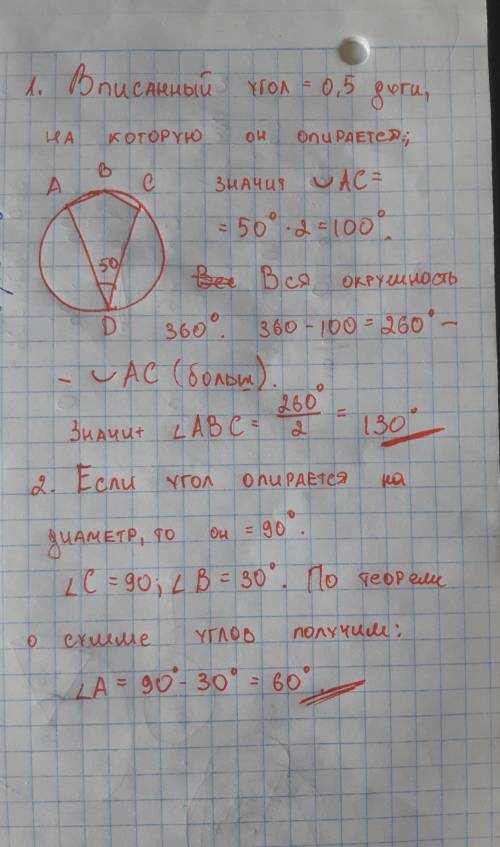 1. Вписанный угол = 0,5 дуги,
на которую он опирается;
A B C
значит ◡AC =
= 50° · 2 = 100°.
50
Вся окружность
D
360°. 360 - 100 = 260° -
- ◡AC (больш).
Значит ∠ABC = 260°/2 = 130°
2. Если угол опирается на
диаметр, то он = 90°.
∠C = 90; ∠B = 30°. По теореме
о сумме углов получим:
∠A = 90° - 30° = 60°